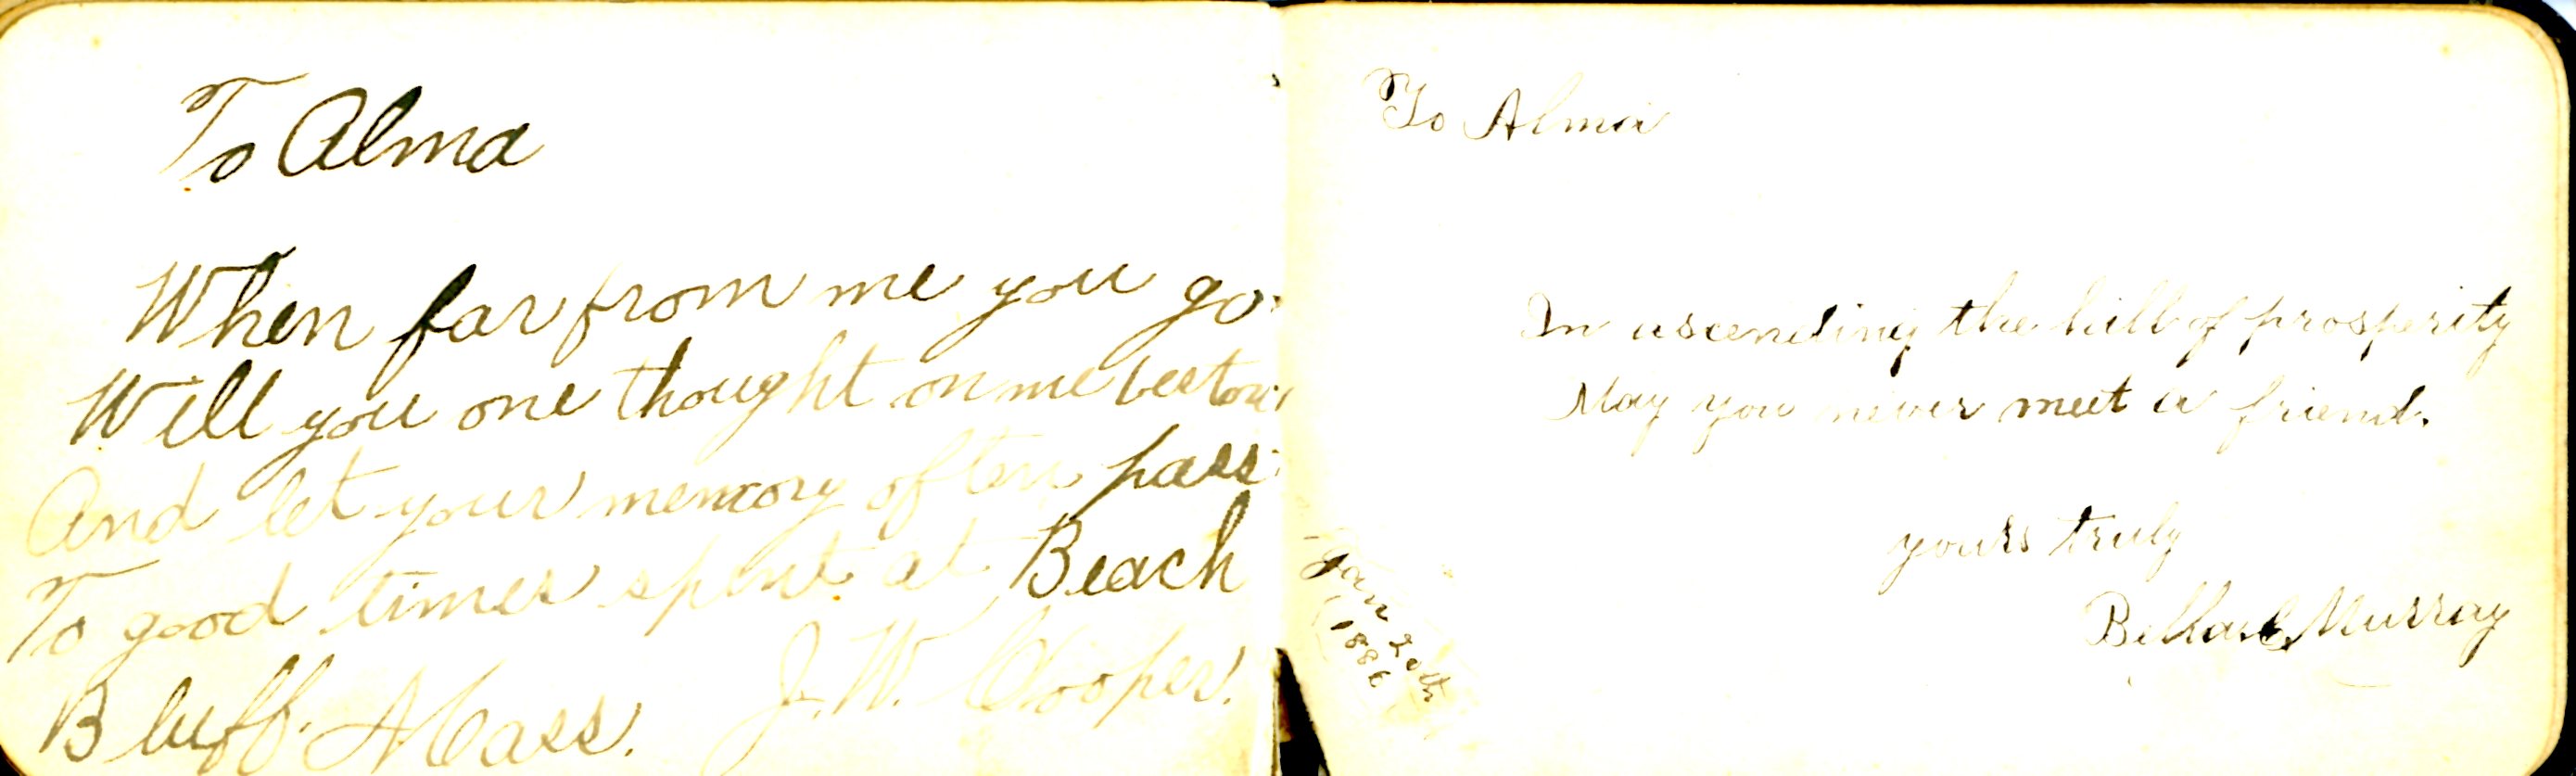 To Alma
When far from me you go
Will you one thought on me bestow
And let your memory often pass
To good times spent at Beach
Bluff. Mass.
J. W. Cooper.
To Alma
In ascending the hill of prosperity
May you never meet a friend.
yours truly
Murray
Jan 20th
1886